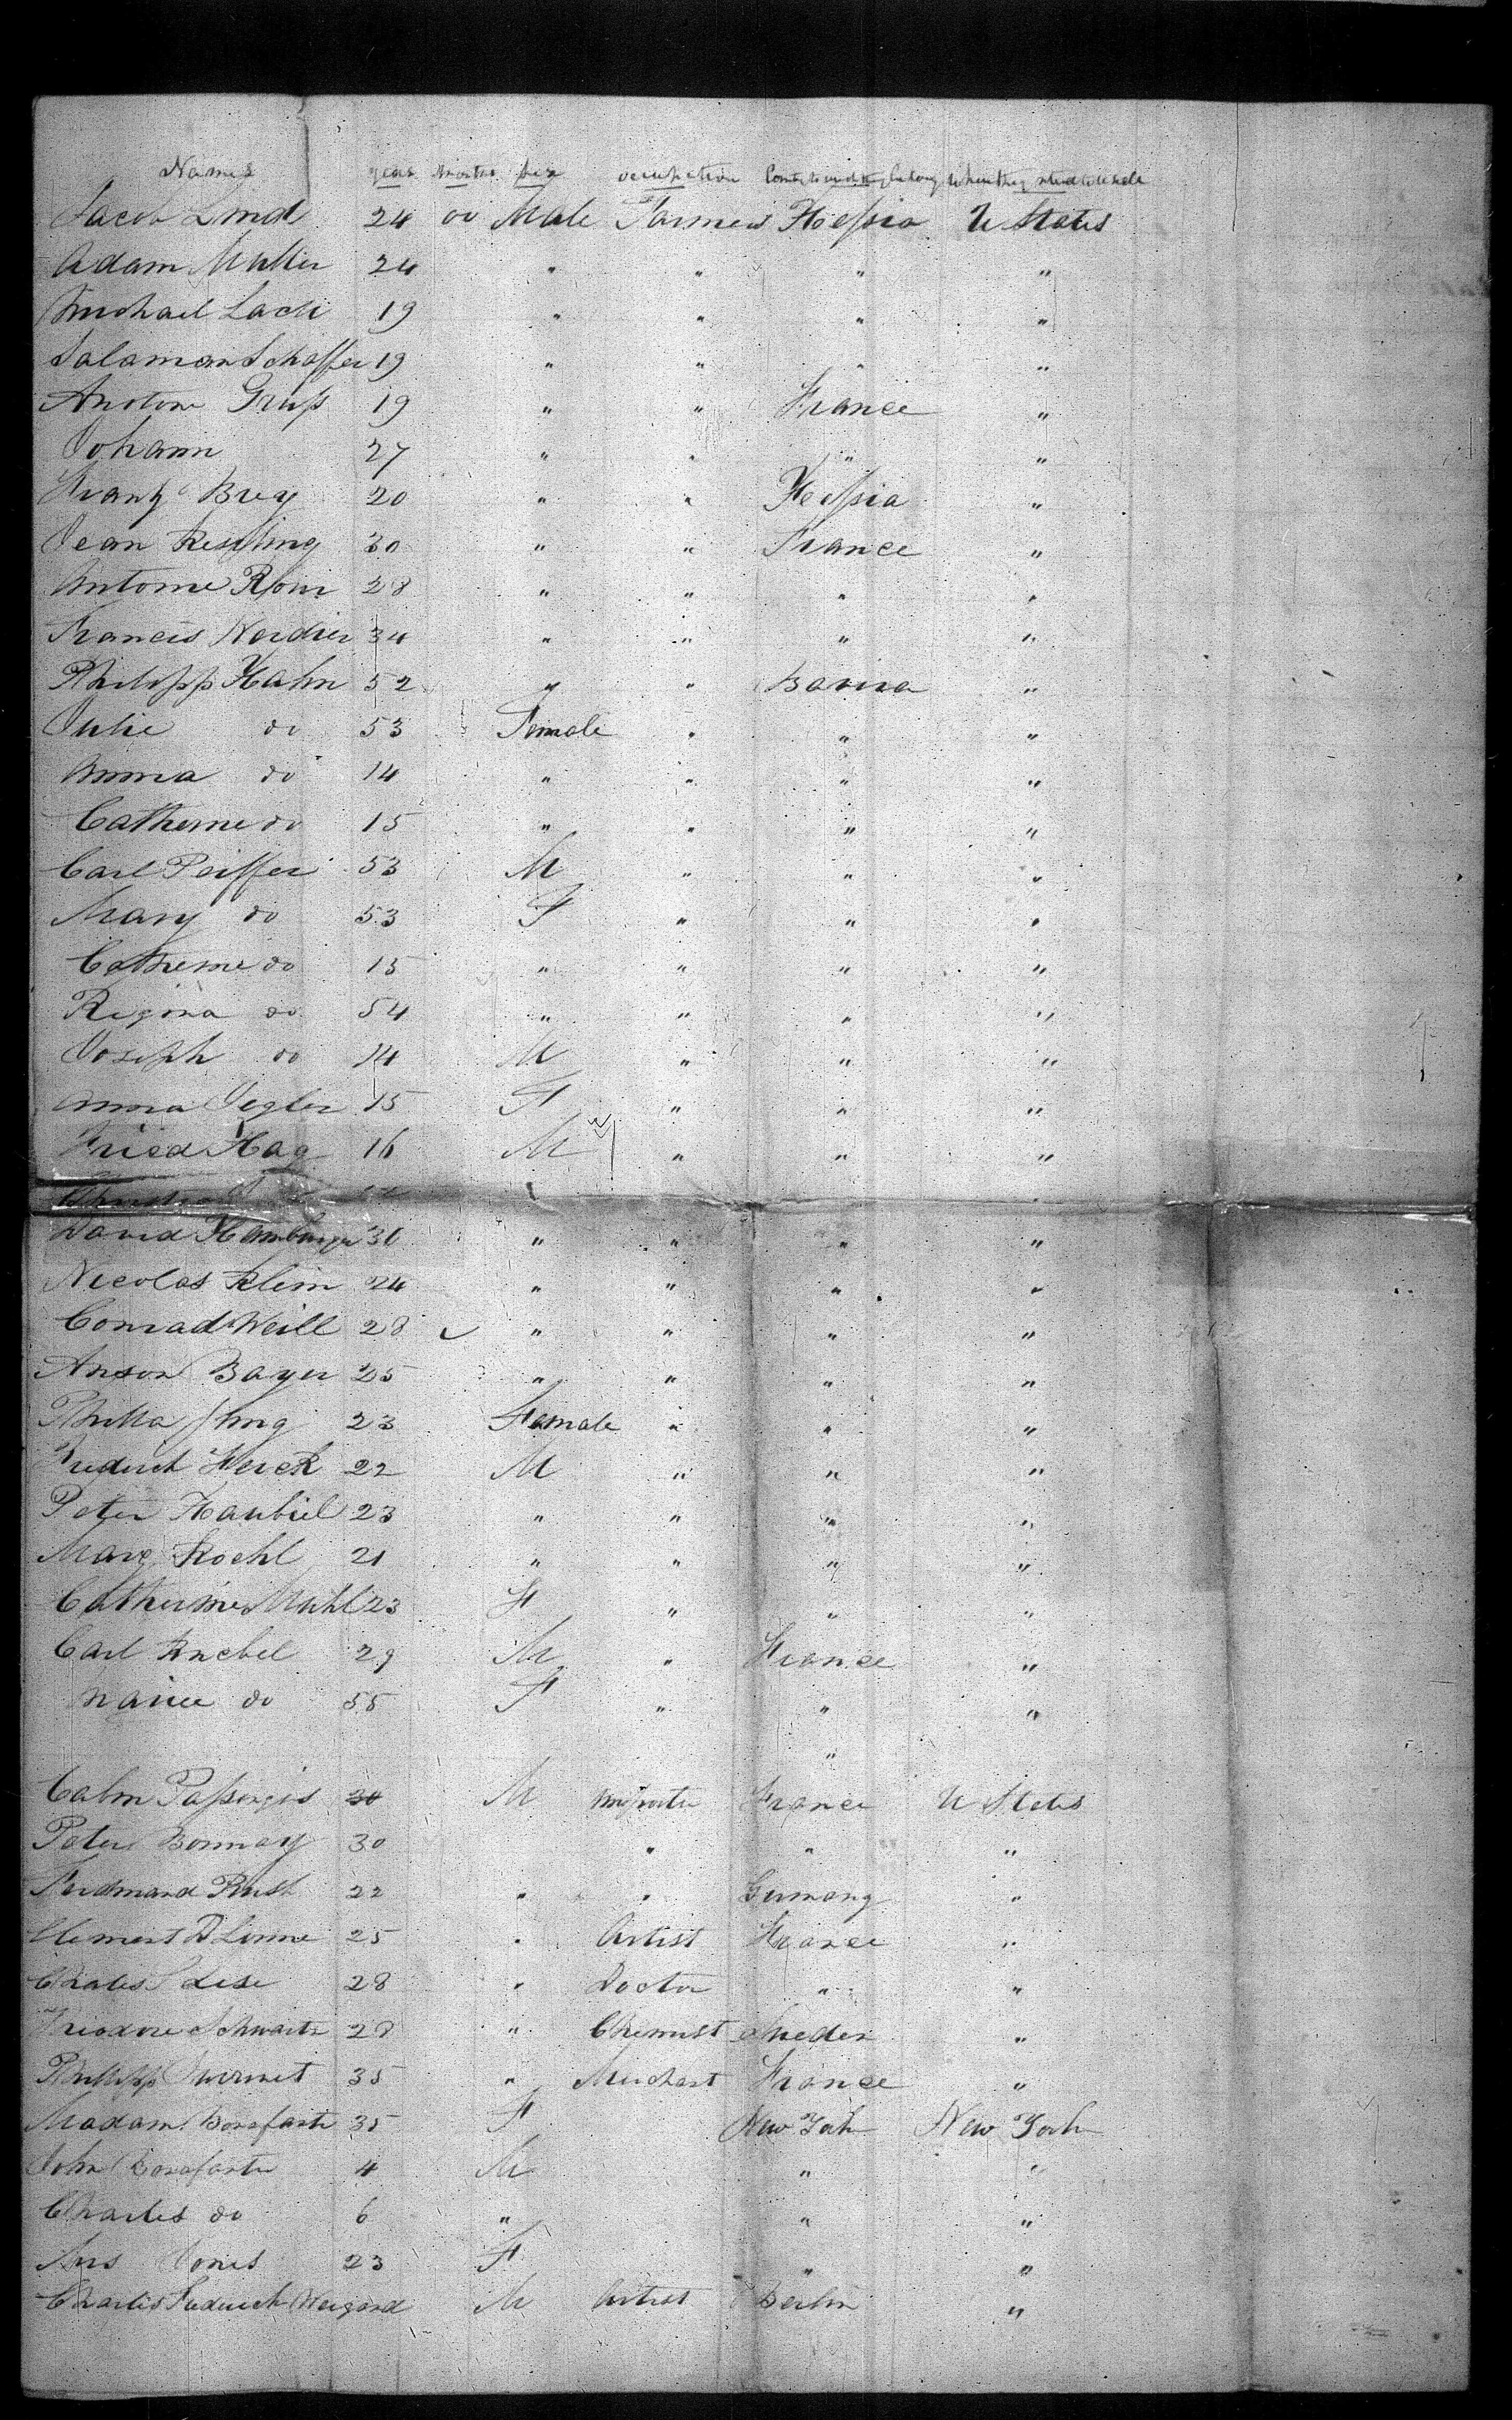 Names years months sex occupation
Jacob Lind 24 00 Male Farmers Hessia U States
Adam Muller 24 " " " "
Michael Lach 19 " " " "
Salaman Schaffer 19 " " " "
Anton Gruss 19 " " France "
Johann 27 " " " "
Frantz Brey 20 " " Hessia "
Jean Kessling 30 " " France "
Antoine Rom 28 " " " "
Francis Nordier 34 " " " "
Philipp Hahn 52 " " Bavira "
Julie do 53 Female " " "
Anna do 14 " " " "
Catherine do 15 " " " "
Carl Peiffer 53 M " " "
Mary do 53 F " " "
Catherine do 15 " " " "
Regina do 54 " " " "
Joseph do 14 M " " "
Anna Jegler 15 F " " "
Fried Hag 16 M " " "
David Hamburger 30 " " " "
Nicolas Klein 24 " " " "
Conrad Weill 28 " " " "
Anson Bayer 25 " " " "
23 Female " " "
Frederich Herck 22 M " " "
Peter Haubiel 23 " " " "
Marg Koehl 21 " " " "
Catherine Muhl 23 F " " "
Carl Knebel 29 M " France "
do 55 F " " "
"
Calm 30 M France U States
Peter Bonnay 30 " " "
Ferdinand Rust 22 " " Germany "
Clement D Linne 25 " Artist France "
Charles Lese 28 " Doctor " "
Theodore Schwartz 28 " Chemist Sweden "
Philipp 35 " Merchant France "
Madam Bonafante 35 F New York New York
John Bonafante 4 M " "
Charles do 6 " " "
Mrs Jones 23 F " "
Charles Frederich Weigand M Artist Berlin "